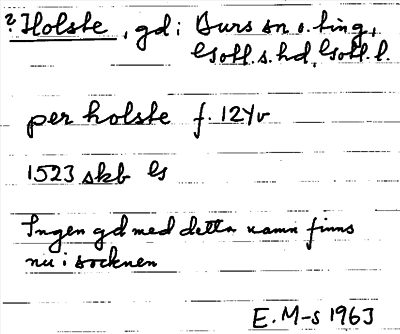 ? Holste, gd i Burs sn o. ting,
Gotl. s. hd, Gotl. l.
per holste f. 12Yv
1523 skb G
Ingen gd med detta namn finns
nu i socknen
E. M-s 1963